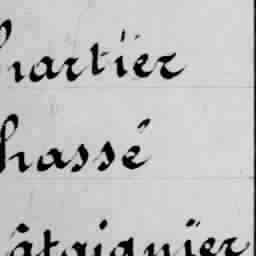 hartier
hassé
âtaignier